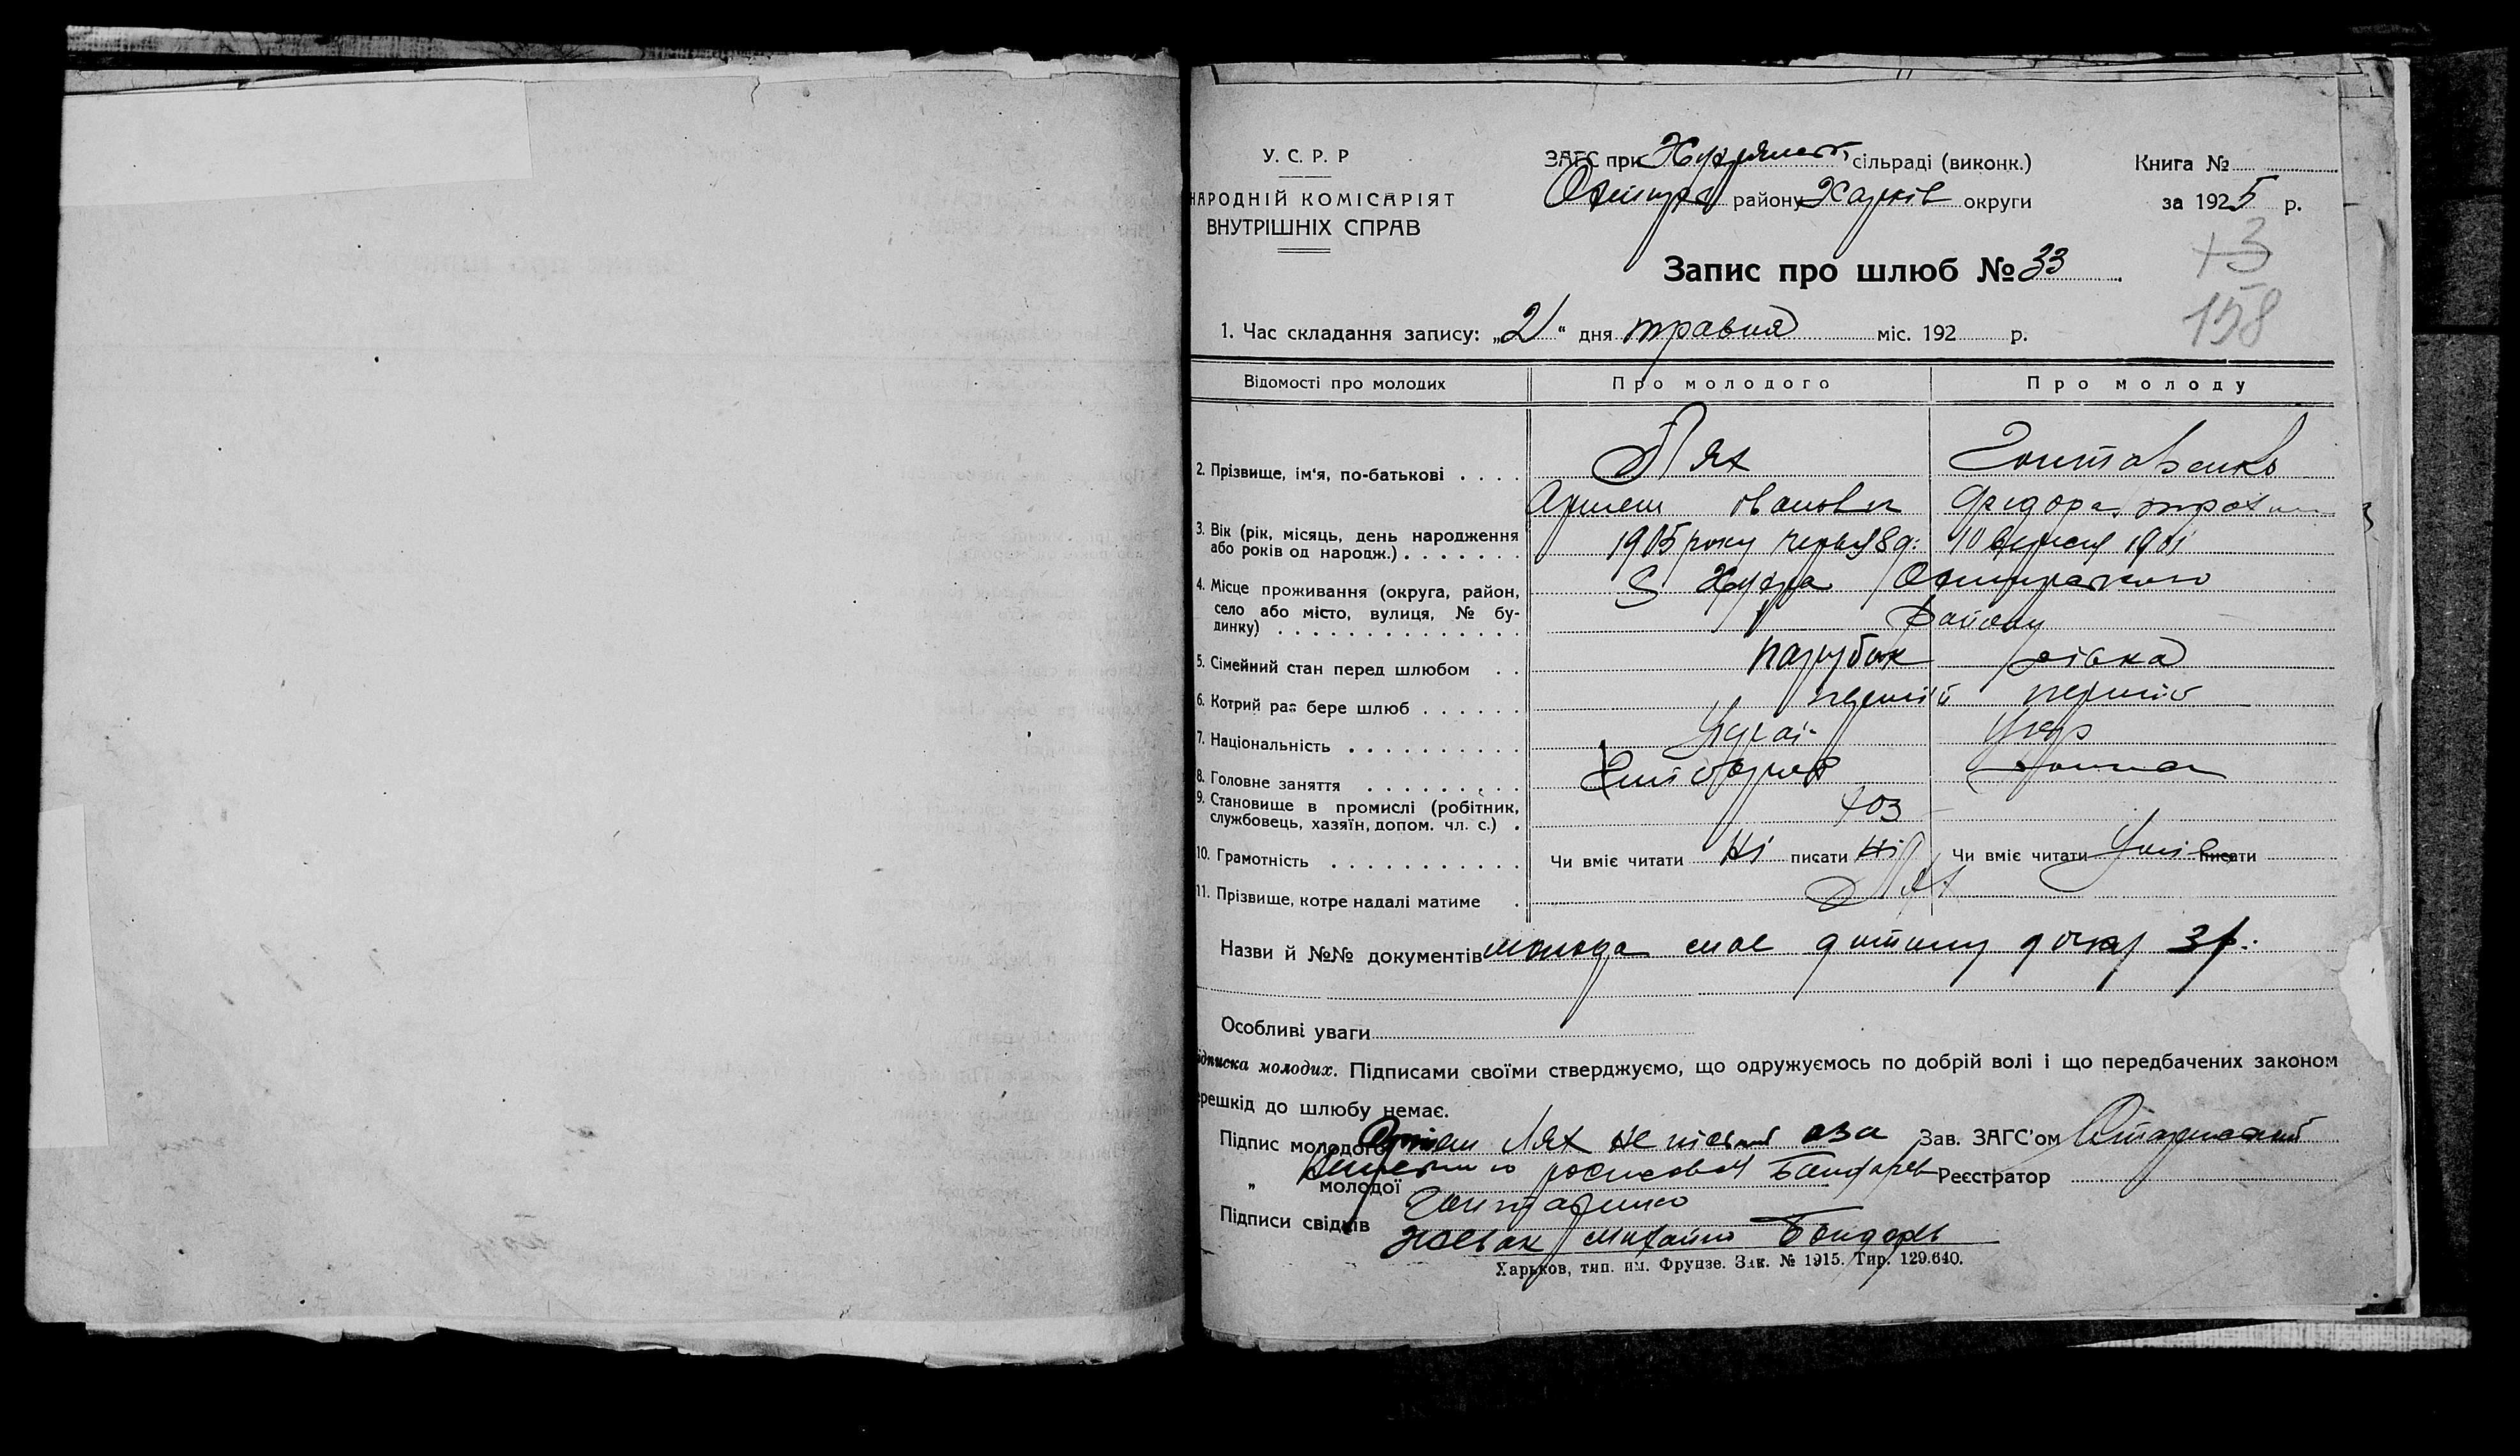 У. С. Р. Р
НАРОДНІЙ КОМІСАРІЯТ
ВНУТРІШНІХ СПРАВ
ЗАГС при сільраді (виконк.)
району Харків округи
Книга №
за 1925 р.
+3
158
Запис про шлюб № 33
1. Час складання запису: „2“ дня травня міс. 192 р.
Відомості про молодих Про молодого Про молоду
2. Прізвище, ім'я, по-батькові . . . . Лях
Артем Іванович Федора
3. Вік (рік, місяць, день народження
або років од народж.) . . . . . . . 1905 року червня 8 д. 10 вересня 1901
4. Місце проживання (округа, район,
село або місто, вулиця, № бу-
динку) . . . . . . . . . . . . . . . району
5. Сімейний стан перед шлюбом . . парубок дівка
6. Котрий раз бере шлюб . . . . . . перший перший
7. Національність . . . . . . . . . . Украї- Укр
8. Головне заняття . . . . . . . . . Хлібороб
9. Становище в промислі (робітник,
службовець, хазяїн, допом. чл. с.) . хоз
10. Грамотність . . . . . . . . . . . Чи вміє читати Ні писати Ні Чи вміє читати Уміє писати
11. Прізвище, котре надалі матиме . Лях
Назви й №№ документів молода має дитину дочку 3 р.
Особливі уваги
ідписка молодих. Підписами своїми стверджуємо, що одружуємось по добрій волі і що передбачених законом
ерешкід до шлюбу немає.
Підпис молодого Артем Лях не Зав. ЗАГС'ом
„ молодої Реєстратор
Підписи свідків
Михайло Бондарь
Харьков, тип. им. Фрунзе. Зак. № 1915. Тир. 129.640.